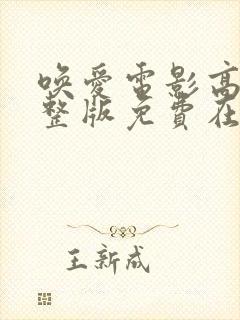 唤愛電影高
整版免費在
王新成